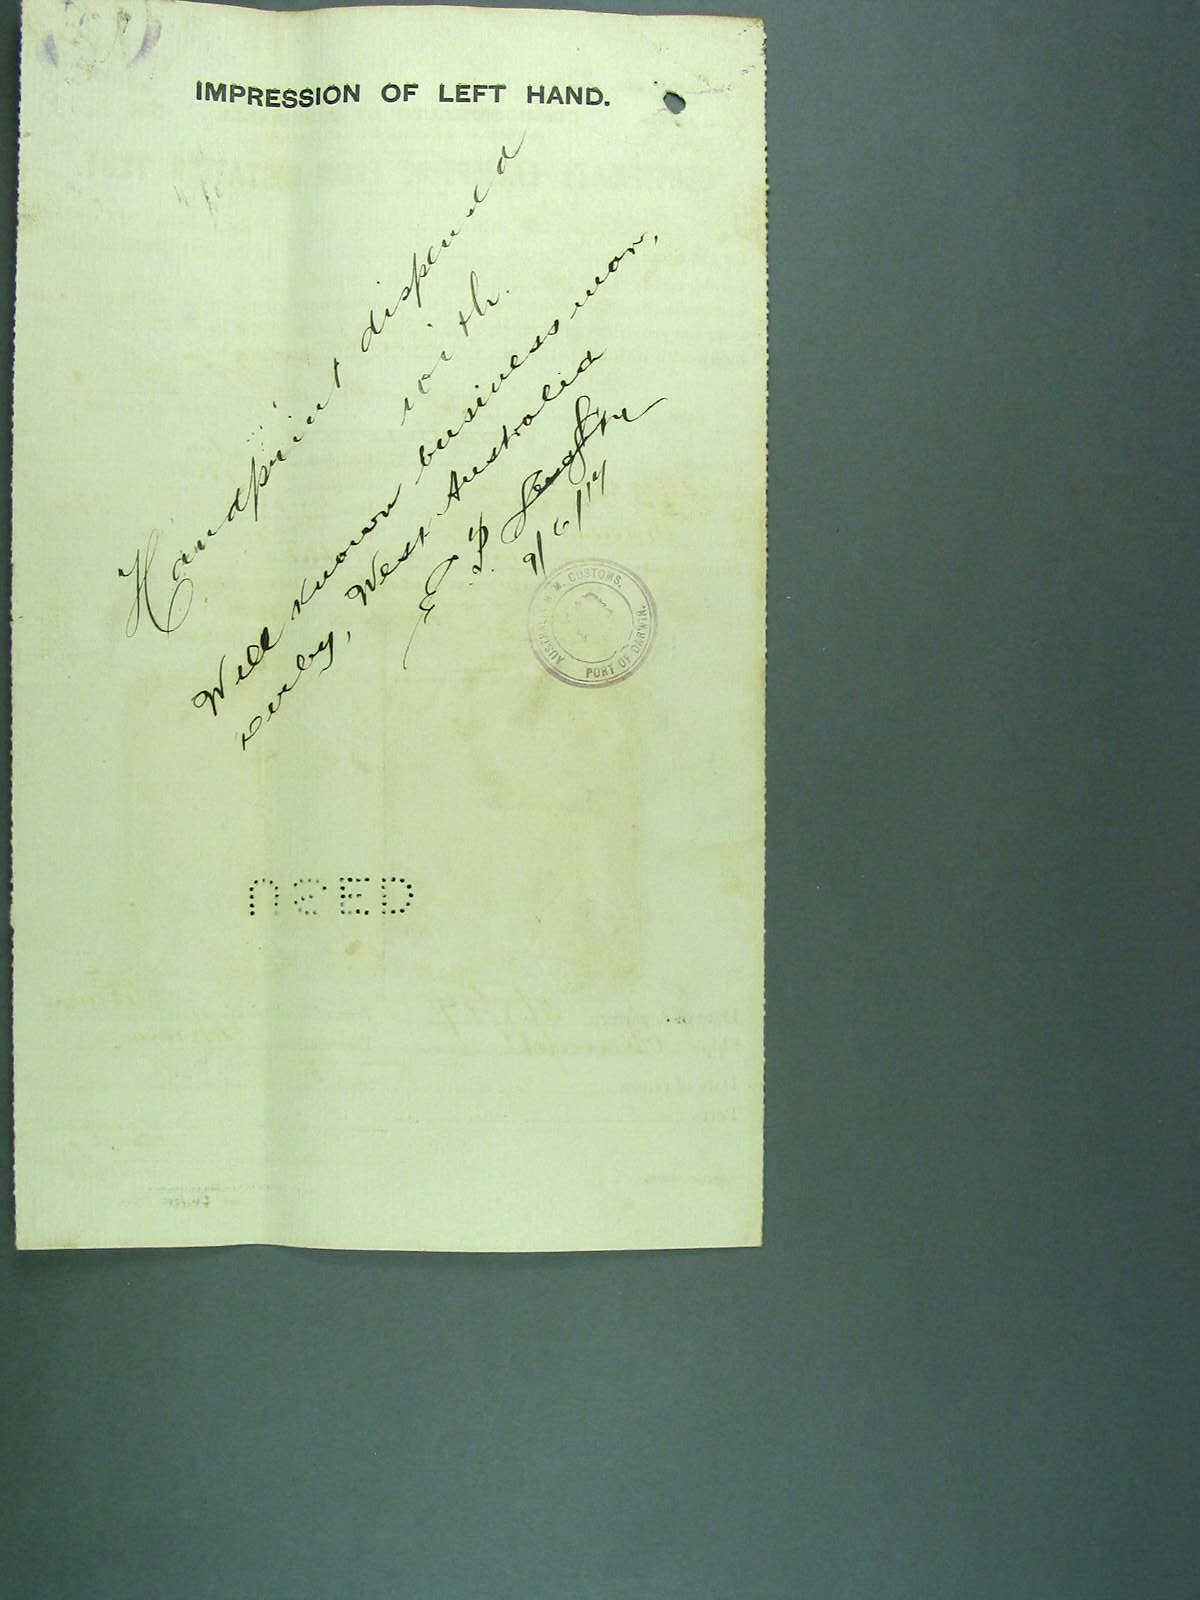 IMPRESSION OF LEFT HAND.
Handprint dispensed
with.
Well known business man,
Derby, West Australia
9/6/14
AUSTRALIA H.M. CUSTOMS.
PORT OF DARWIN.
USED